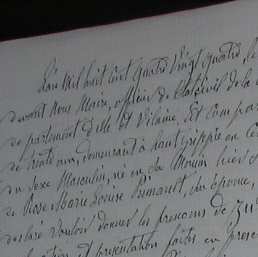 L'an Mil huit cent quatre vingt quatre, le
devant nous Maire, officier de l'état civil de la
département d'Ille et Vilaine, est comparu
de trente ans, demeurant à
du sexe Masculin, né en du Moulin hier
de Rose Marie Louise son épouse,
déclaré vouloir donner les prénoms de
et présentation faites en